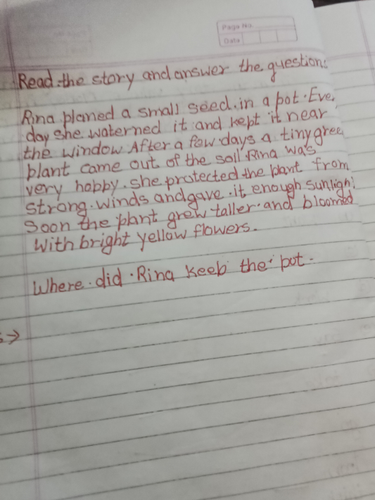 Page No.
Date
Read the story and answer the question:
Rina planed a small seed.in a pot. Eve
day she waterned it and kept it near
the window After a few days a tiny gree
plant came out of the soil.Rina was
very habby.she protected the plant from
strong.winds and gave.it enough sunligh
Soon the plant grew taller.and bloomed
With bright yellow flowers.
Where.did.Rina keeb the pot.